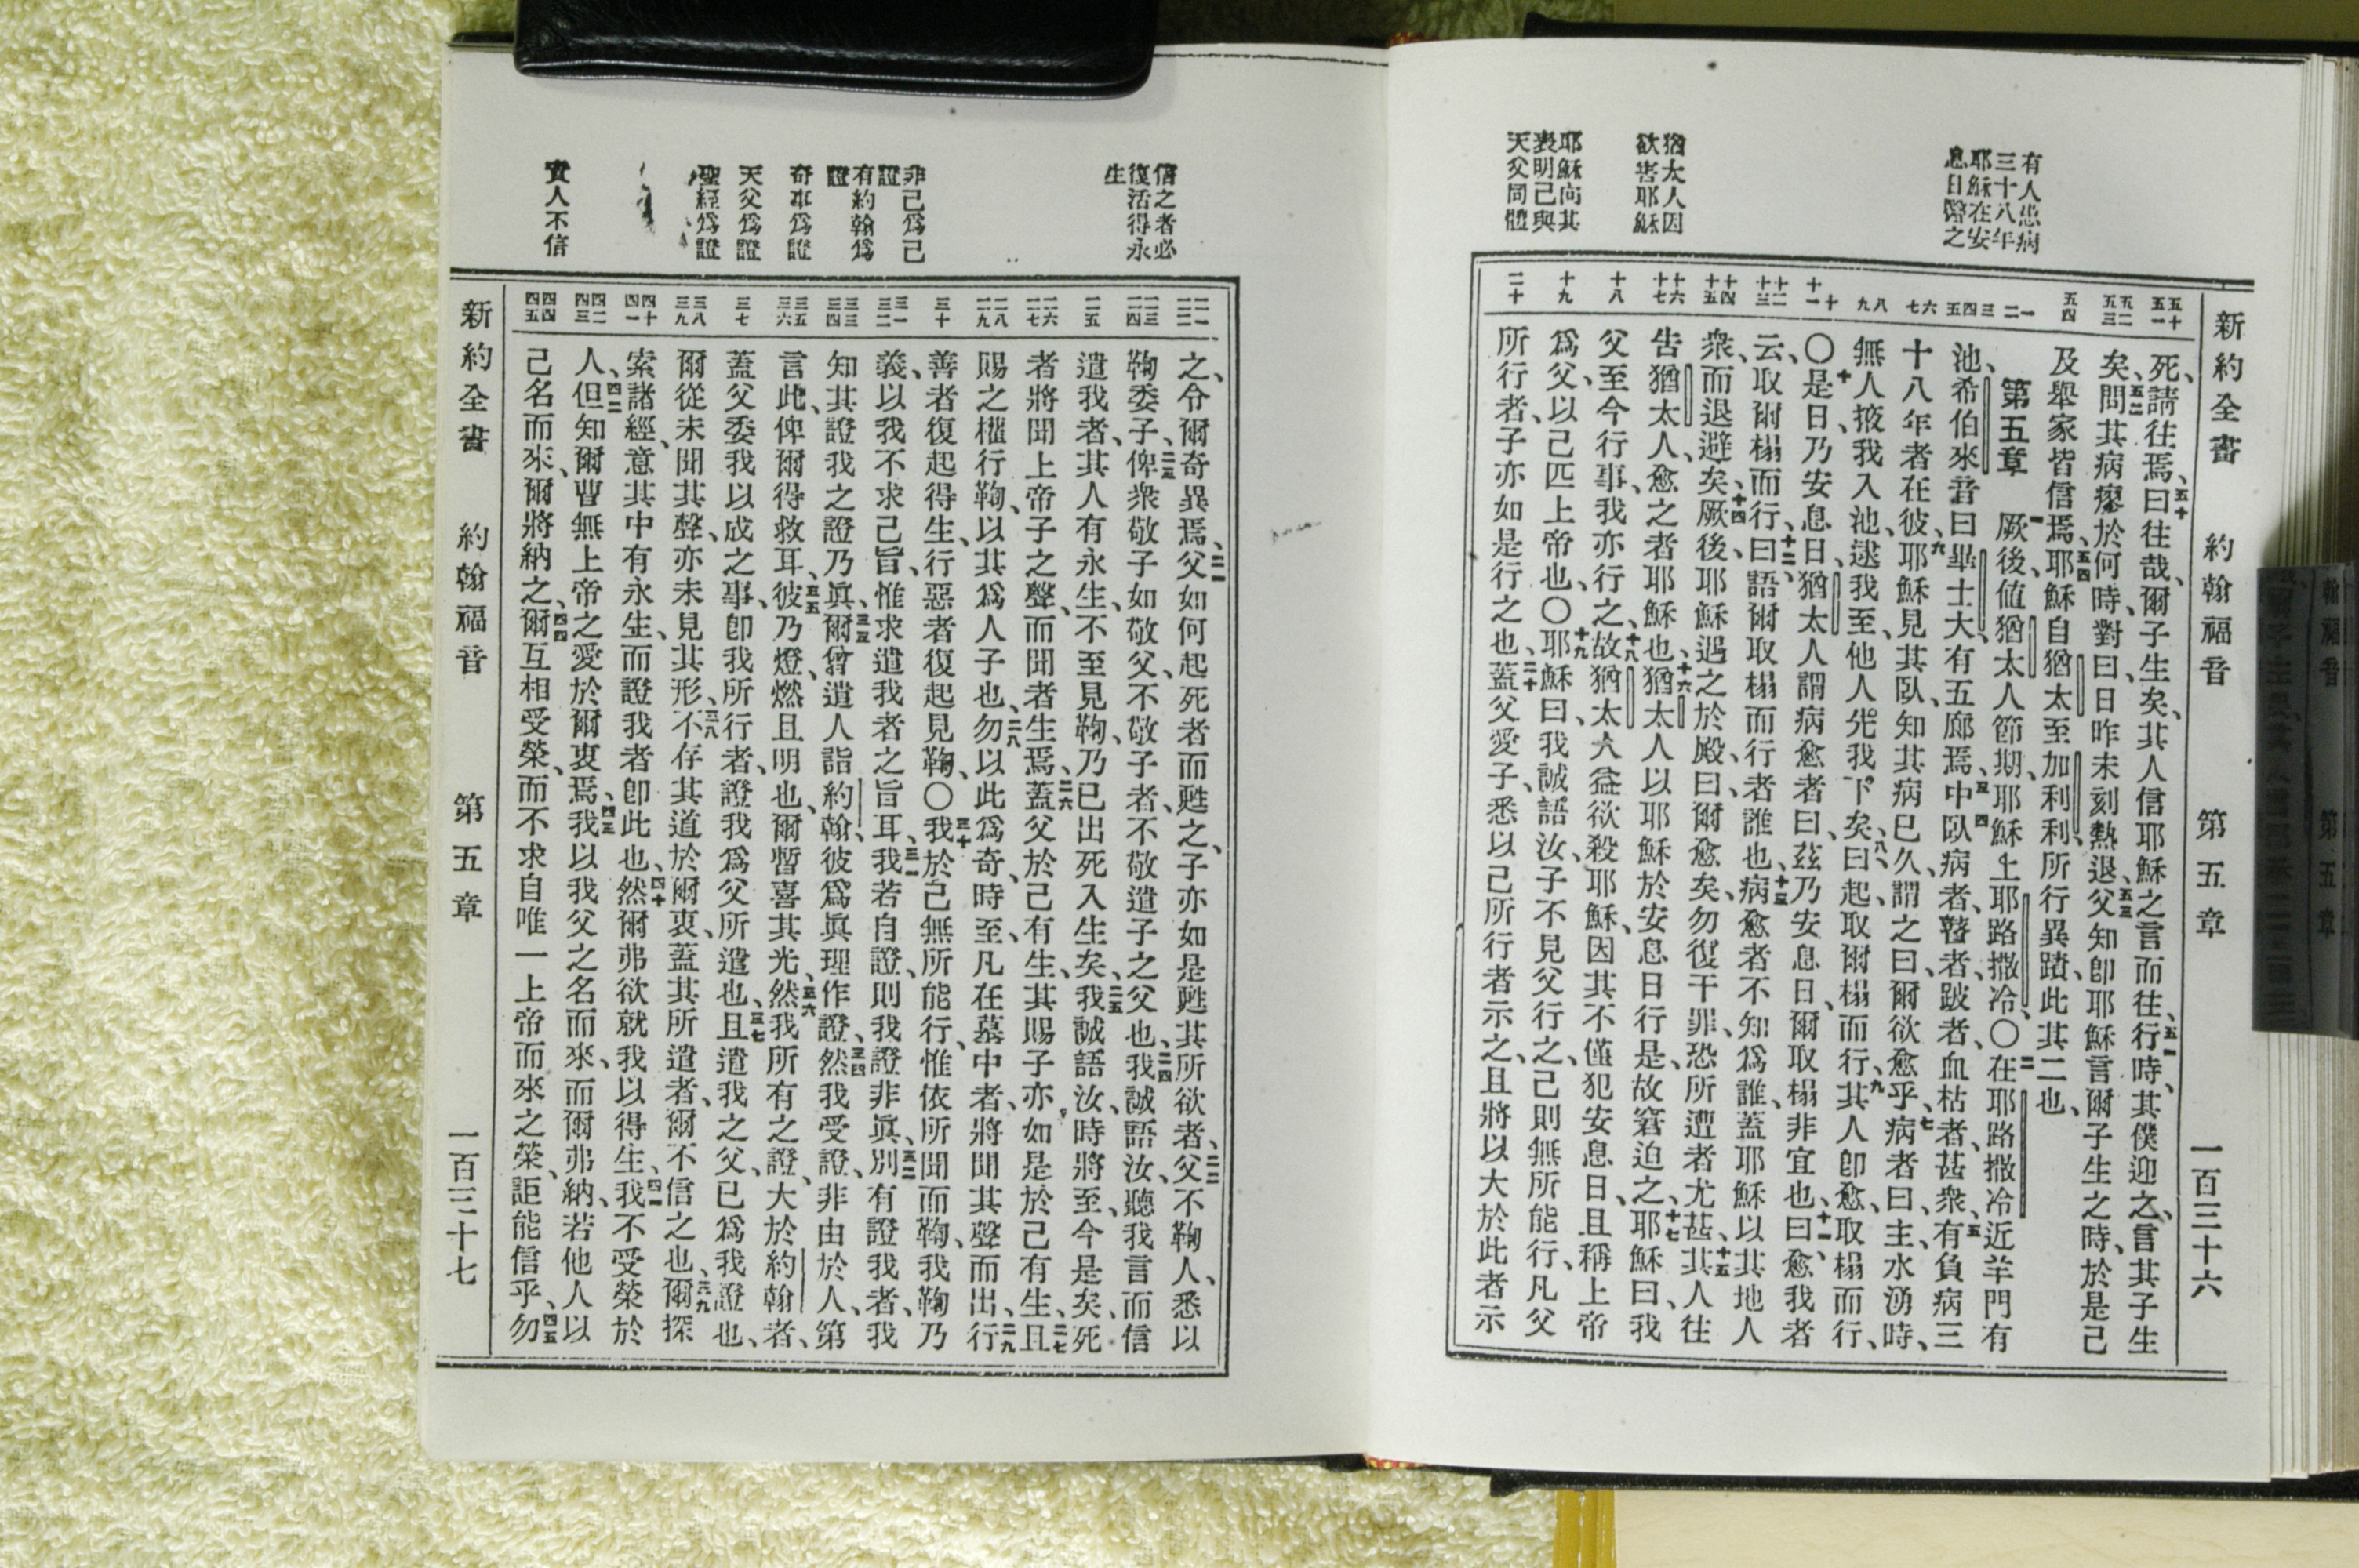 新約全書 約翰福音 第五章 一百三十六
有人患病
三十八年
耶穌在安
息日醫之
猶太人因
欲害耶穌
耶穌向其
表明己與
天父同體
五十
五一
五二
五三
五四
一
二
三
四
五
六
七
八
九
十
十一
十二
十三
十四
十五
十六
十七
十八
十九
二十
死、請往焉、五十曰往哉、爾子生矣、其人信耶穌之言而往、五一行時、其僕迎之、言其子生
矣、五二問其病瘳於何時、對曰、日昨未刻熱退、五三父知卽耶穌言爾子生之時、於是己
及舉家皆信焉、五四耶穌自猶太至加利利、所行異蹟、此其二也、
第五章 一厥後、値猶太人節期、耶穌上耶路撒冷、〇二在耶路撒冷近羊門有
池、希伯來音曰畢士大、有五廊焉、三中臥病者、瞽者、跛者、血枯者、甚衆、五有負病三
十八年者在彼、六耶穌見其臥、知其病已久、謂之曰、爾欲愈乎、七病者曰、主、水湧時、
無人掖我入池、逮我至、他人先我下矣、八曰、起、取爾榻而行、九其人卽愈、取榻而行、
〇十是日、乃安息日、猶太人謂病愈者曰、茲乃安息日、爾取榻非宜也、十一曰、愈我者
云、取爾榻而行、十二曰、語爾取榻而行者誰也、十三病愈者不知爲誰、蓋耶穌以其地人
衆、而退避矣、十四厥後耶穌遇之於殿、曰、爾愈矣、勿復干罪、恐所遭者尤甚、十五其人往
告猶太人、愈之者耶穌也、十六猶太人以耶穌於安息日行是、故窘迫之、十七耶穌曰、我
父至今行事、我亦行之、十八故猶太人益欲殺耶穌、因其不僅犯安息日、且稱上帝
爲父、以己匹上帝也、〇十九耶穌曰、我誠語汝、子不見父行之、己則無所能行、凡父
所行者、子亦如是行之也、二十蓋父愛子、悉以己所行者示之、且將以大於此者示
信之者必
復活得永
生
非己爲己
證
有約翰爲
證
奇事爲證
天父爲證
聖經爲證
責人不信
二一
二二
二三
二四
二五
二六
二七
二八
二九
三十
三一
三二
三三
三四
三五
三六
三七
三八
三九
四十
四一
四二
四三
四四
四五
之、令爾奇異焉、二一父如何起死者而甦之、子亦如是甦其所欲者、二二父不鞫人、悉以
鞫委子、二三俾衆敬子如敬父、不敬子者、不敬遣子之父也、二四我誠語汝、聽我言而信
遣我者、其人有永生、不至見鞫、乃已出死入生矣、二五我誠語汝、時將至、今是矣、死
者將聞上帝子之聲、而聞者生焉、二六蓋父於己有生、其賜子亦如是於己有生、二七且
賜之權行鞫、以其爲人子也、二八勿以此爲奇、時至、凡在墓中者、將聞其聲而出、二九行
善者復起得生、行惡者復起見鞫、〇三十我於己無所能行、惟依所聞而鞫、我鞫乃
義、以我不求己旨、惟求遣我者之旨耳、三一我若自證、則我證非眞、三二別有證我者、我
知其證我之證乃眞、三三爾曾遣人詣約翰、彼爲眞理作證、三四然我受證、非由於人、第
言此、俾爾得救耳、三五彼乃燈、燃且明也、爾暫喜其光、三六然我所有之證、大於約翰者、
蓋父委我以成之事、卽我所行者、證我爲父所遣也、三七且遣我之父、已爲我證也、
爾從未聞其聲、亦未見其形、三八不存其道於爾衷、蓋其所遣者、爾不信之也、三九爾探
索諸經、意其中有永生、而證我者卽此也、四十然爾弗欲就我以得生、四一我不受榮於
人、四二但知爾曹無上帝之愛於爾衷焉、四三我以我父之名而來、而爾弗納、若他人以
己名而來、爾將納之、四四爾互相受榮、而不求自唯一上帝而來之榮、詎能信乎、四五勿
新約全書 約翰福音 第五章 一百三十七